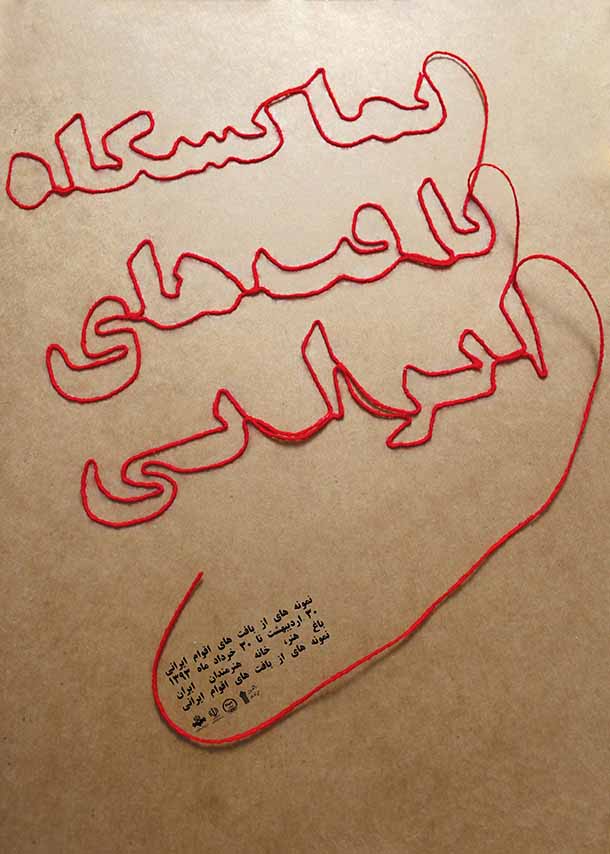 نمایشگاه
بافت‌های
ایرانی
نمونه های از بافت های اقوام ایرانی
۳۰ اردیبهشت تا ۳۰ خرداد ماه ۱۳۹۳
باغ هنر، خانه هنرمندان ایران
نمونه های از بافت های اقوام ایرانی